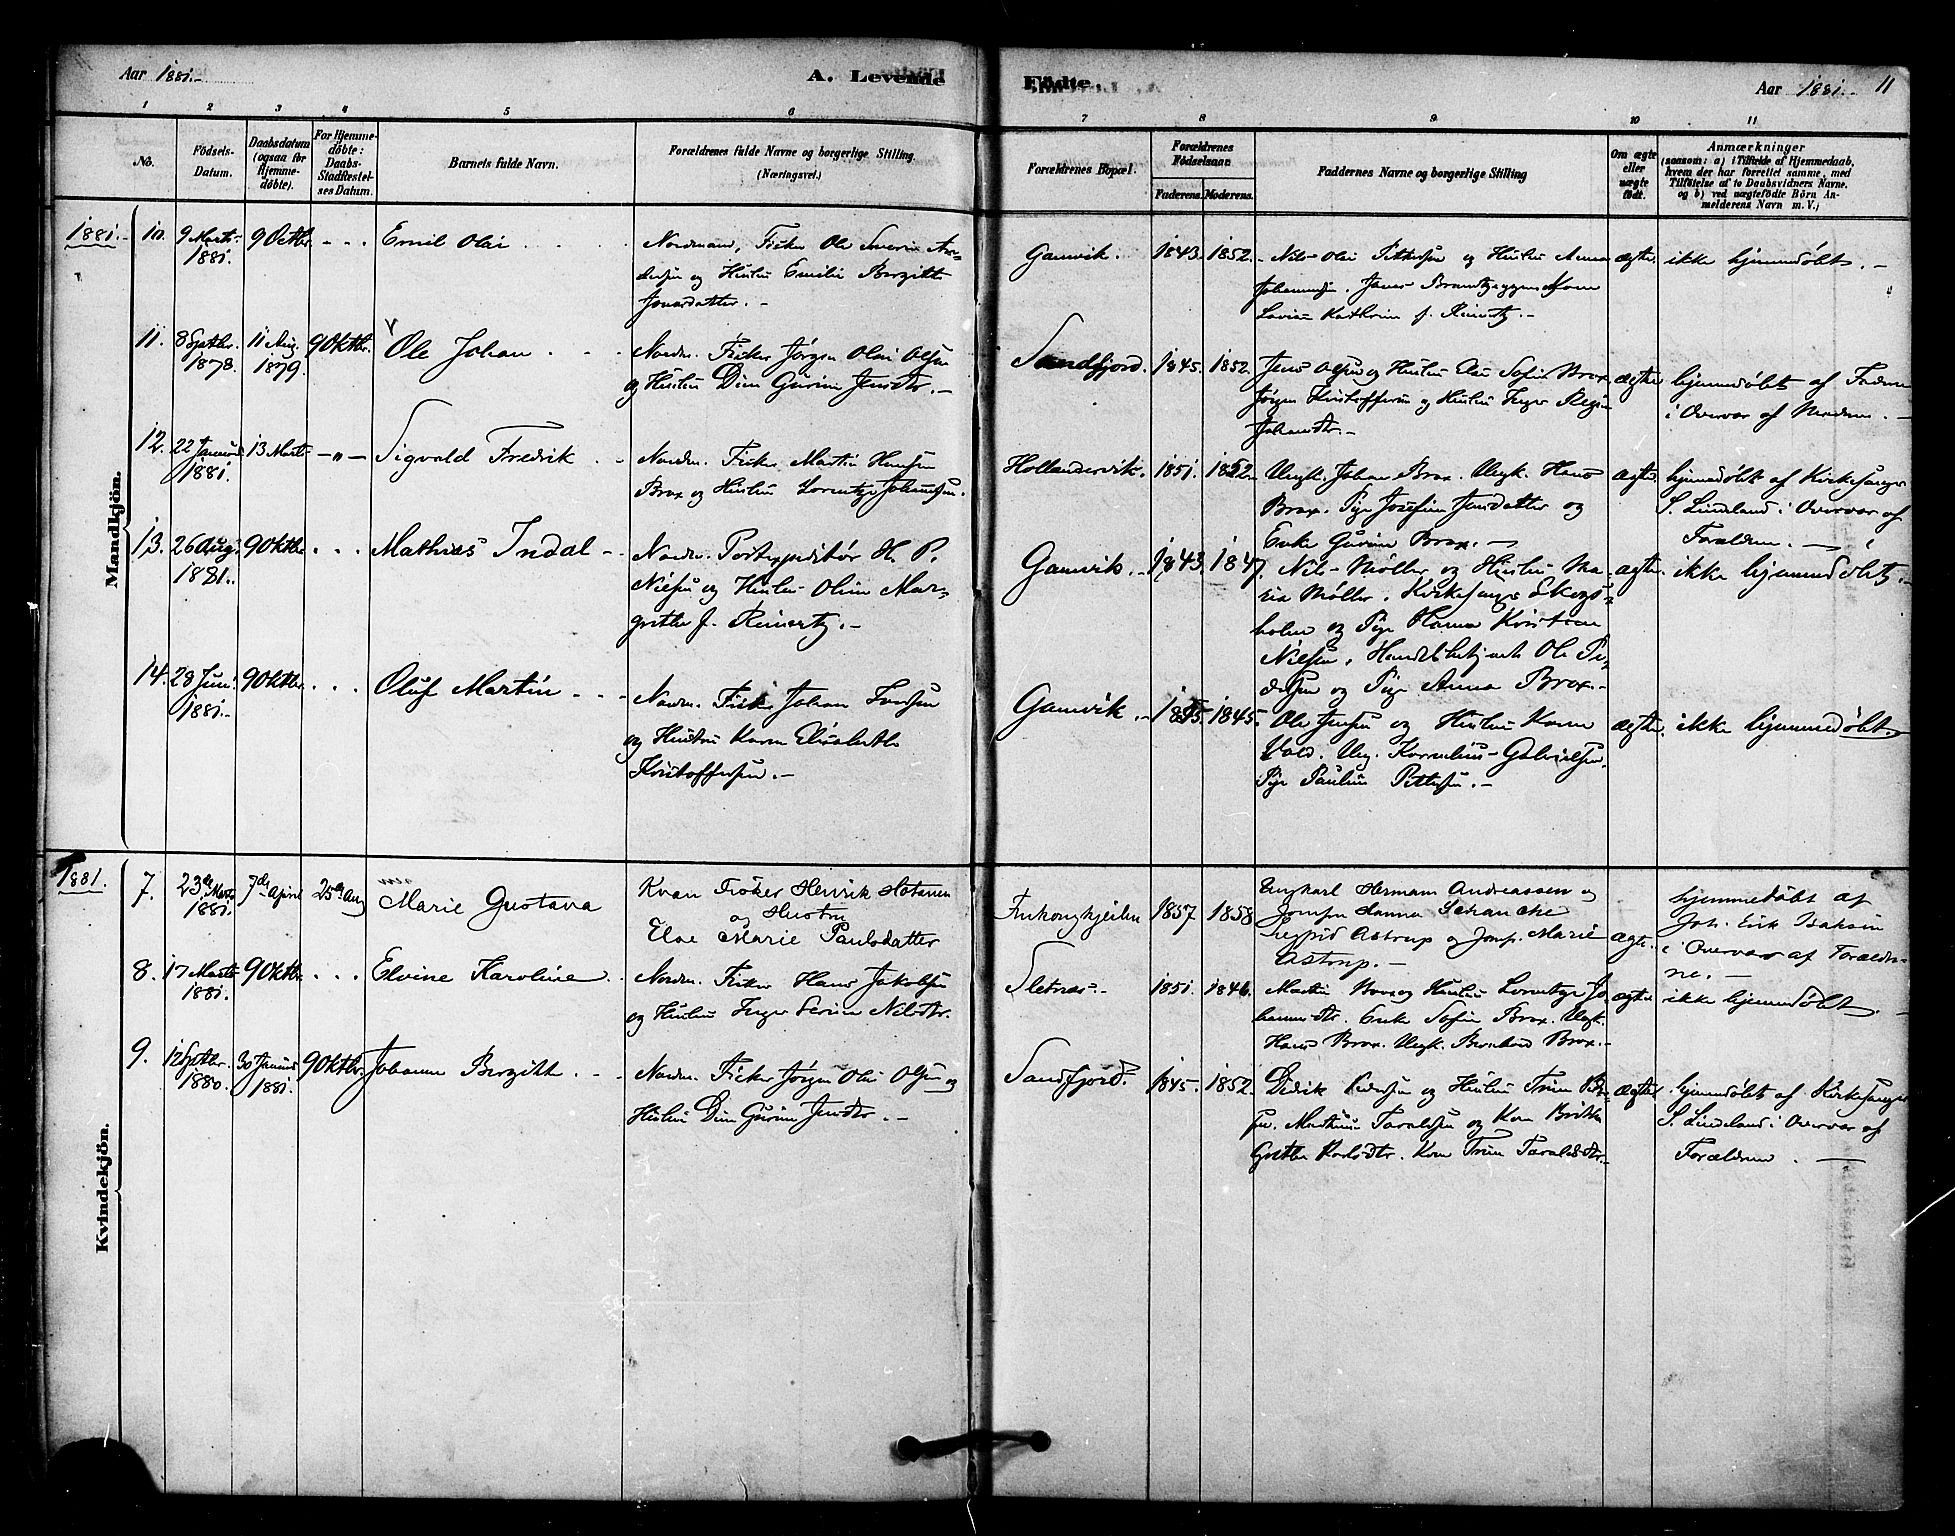 Aar 1881.
A. Levende
Födte.
Aar 1881. 11
1 2 3 4 5 6 7 8 9 10 11
No.
Födsels-
Datum.
Daabsdatum
(ogsaa for
Hjemme-
döbte).
For Hjemme-
döbte:
Daabs-
Stadfæstel-
ses Datum.
Barnets fulde Navn.
Forældrenes fulde Navne og borgerlige Stilling
(Næringsvei.)
Forældrenes Bopæl.
Forældrenes
Födselsaar
Faderens. Moderens.
Faddernes Navne og borgerlige Stilling
Om ægte
eller
uægte
födt.
Anmærkninger
(saasom: a) i Tilfælde af Hjemmedaab,
hvem der har forrettet samme, med
Tilföielse af to Daabsvidners Navne.
og b) ved uægtefödte Börn An-
melderens Navn m. V.;
Mandkjön.
1881.
10. 9 Marts 1881. 9 Octbr. Emil Olai
Nordmand, Fisker Ole Severin An-
dersen og Hustru Emilie Bergitte
Jonasdatter.
Gamvik. 1843. 1852.
Nils Olai Pettersen og Hustru Anna
Johannesen. Jonas
Lovise Kathrine f. Reinertz.
ægte. ikke hjemmedøbt.
11. 8 Septbr. 1878. 11 Aug. 1879. 9 Oktbr. Ole Johan
Nordm. Fisker Jørgen Olai Olsen
og Hustru Dina Gurine Jensdtr.
Sandfjord. 1845. 1852.
Jens Olsen og Hustru Else Sofie Brox
Jørgen Kristoffersen og Hustru Inger Regine
Johansdtr.
ægte. hjemmedøbt af Faderen
i Overvær af Moderen.
12. 22 Januar 1881. 13 Marts Sigvald Fredrik
Nordm. Fisker Martin Hansen
Brox og Hustru Lorentze Johannesen.
Hollandervik. 1851. 1852.
Ungk. Johan Brox. Ungk. Hans
Brox. Pige Josefine Jensdatter og
Enke Gurine Brox.
ægte. hjemmedøbt af Kirkesanger
S. Lindeland i Overvær af
Forældrene.
13. 26 Aug. 1881. 9 Oktbr. Mathias Indal
Nordm. Postexpeditør H. P.
Nielsen og Hustru Oline Mar-
grethe f. Reinertz.
Gamvik. 1843. 1847.
Nils Møller og Hustru Ma-
ria Møller. Kirkesanger Skogs-
holm og Pige Hanna Kristine
Nielsen. Handelsbetjent Ole Pe-
dersen og Pige Anna Brox.
ægte. ikke hjemmedøbt.
14. 28 Juni 1881. 9 Oktbr. Oluf Martin
Nordm. Fisker Johan Iversen
og Hustru Karen Elisabeth
Kristoffersen.
Gamvik. 1845.
Ole Jensen og Hustru Karen
Vold. Ung. Kornelius Gabrielsen.
Pige Pauline Pettersen.
ægte. ikke hjemmedøbt.
Kvindekjön.
1881.
7. 23de Marts 1881. 7de April 25de Aug Marie Gustava
Kvæn Fisker Henrik Hotanen
og Hustru
Else Marie Paulsdatter
Finkongkjeilen 1857 1858
Ungkarl Herman Andreassen og
Jomfru Hanna Schanche
Sigrid Astrup og Jomf. Marie
Astrup.
ægte. hjemmedøbt af
Joh. Erik Isaksen
i Overvær af Forældre-
ne.
8. 17 Marts 1881. 9 Oktbr. Elvine Karoline
Nordm. Fisker Hans Jakobsen
og Hustru Inger Serine Nilsdtr.
Sletnes. 1851. 1846.
Martin Brox og Hustru Lorentze Jo-
hannesdtr. Enke Sofie Brox. Ungk.
Hans Brox. Ungk. Bernhard Brox.
ægte. ikke hjemmedøbt.
9. 12 Septbr. 1880. 30 Januar 1881. 9 Oktbr. Johanne Bergitte
Nordm. Fisker Jørgen Olai Olsen og
Hustru Dina Gurine Jensdtr.
Sandfjord. 1845. 1852.
Didrik Pedersen og Hustru Trine Peder-
sen. Martinus Taraldsen og Kone Britha
Grethe Karlsdtr. Kone Trine Taraldsdtr.
ægte. hjemmedøbt af Kirkesanger
S. Lindeland i Overvær af
Forældrene.